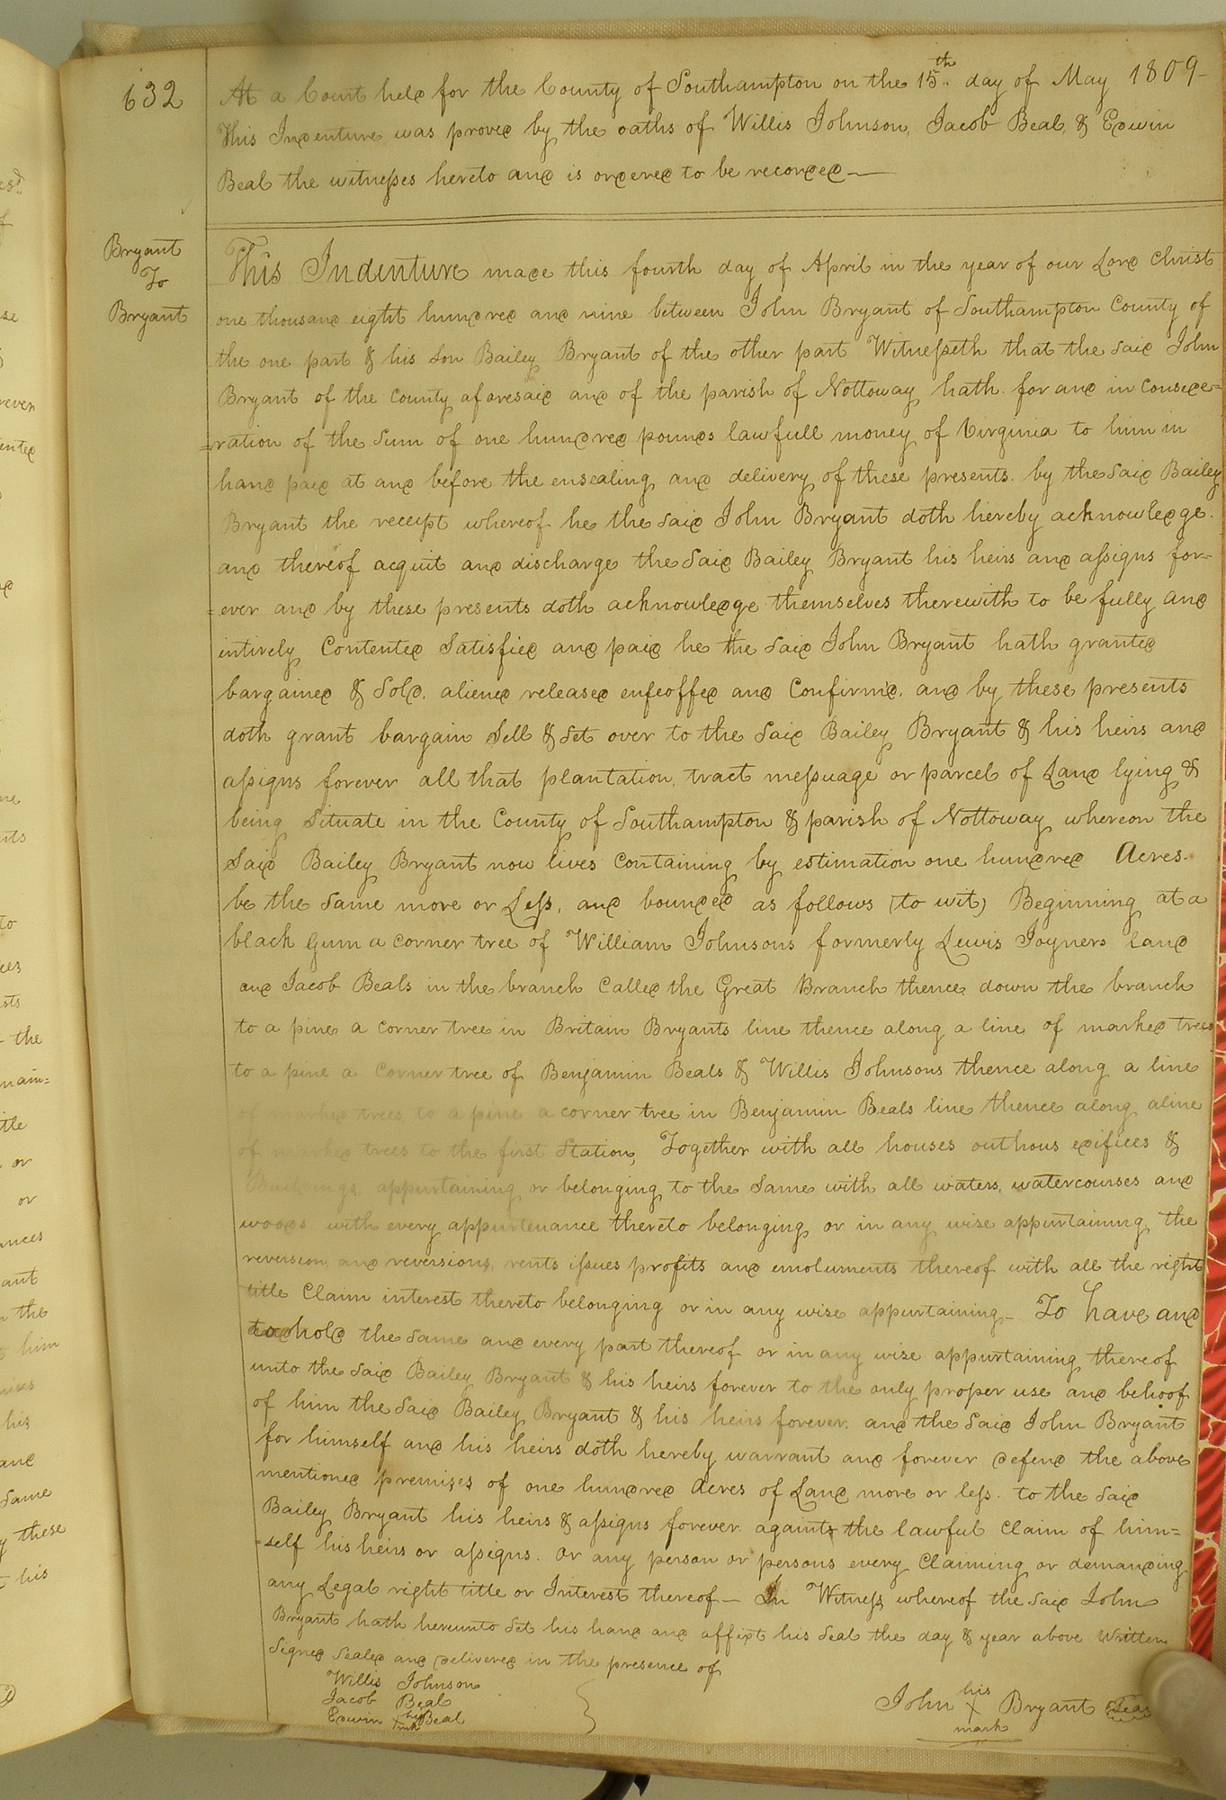 632
At a Court held for the County of Southampton on the 15th day of May 1809-
This Indenture was proved by the oaths of Willis Johnson, Jacob Beal, & Edwin
Beal the witnesses hereto and is ordered to be recorded —
Bryant
To
Bryant
This Indenture made this fourth day of April in the year of our Lord Christ
one thousand eight hundred and nine between John Bryant of Southampton County of
the one part & his Son Bailey Bryant of the other part Witnesseth that the said John
Bryant of the County aforesaid and of the parish of Nottoway hath for and in Conside=
=ration of the Sum of one hundred pounds lawfull money of Virginia to him in
hand paid at and before the ensealing and delivery of these presents. by the Said Bailey
Bryant the receipt whereof he the Said John Bryant doth hereby acknowledge.
and thereof acquit and discharge the Said Bailey Bryant his heirs and assigns for-
=ever and by these presents doth acknowledge themselves therewith to be fully and
intirely Contented Satisfied and paid he the Said John Bryant hath granted
bargained & Sold. aliened released enfeoffed and Confirm'd. and by these presents
doth grant bargain Sell & Set over to the Said Bailey Bryant & his heirs and
assigns forever all that plantation, tract messuage or parcel of Land lying &
being Situate in the County of Southampton & parish of Nottoway whereon the
Said Bailey Bryant now lives Containing by estimation one hundred Acres.
be the Same more or Less, and bounded as follows (to wit) Beginning at a
black Gum a corner tree of William Johnsons formerly Lewis Joyners land
and Jacob Beals in the branch Called the Great Branch thence down the branch
to a pine a corner tree in Britain Bryants line thence along a line of marked trees
to a pine a corner tree of Benjamin Beals & Willis Johnsons thence along a line
of marked trees to a pine a corner tree in Benjamin Beals line thence along aline
of marked trees to the first Station, Together with all houses outhous edifices &
Buildings appurtaining or belonging to the Same with all waters, watercourses and
woods with every appurtenance thereto belonging or in any wise appurtaining the
reversion and reversions, rents issues profits and emoluments thereof with all the right
title Claim interest thereto belonging or in any wise appurtaining- To have and
to hold the Same and every part thereof or in any wise appurtaining thereof
unto the Said Bailey Bryant & his heirs forever to the only proper use and behoof
of him the Said Bailey Bryant & his heirs forever. and the Said John Bryant
for himself and his heirs doth hereby warrant and forever defend the above
mentioned premises of one hundred Acres of Land more or less. to the Said
Bailey Bryant his heirs & assigns forever againts the lawful Claim of him=
=self his heirs or assigns. or any person or persons every Claiming or demanding
any Legal right title or Interest thereof — In Witness whereof the Said John
Bryant hath hereunto Set his hand and affixt his Seal the day & year above Written
Signed Sealed and Delivered in the presence of
Willis Johnson
Jacob Beal
Edwin his X mark Beal
John his X mark Bryant Seal